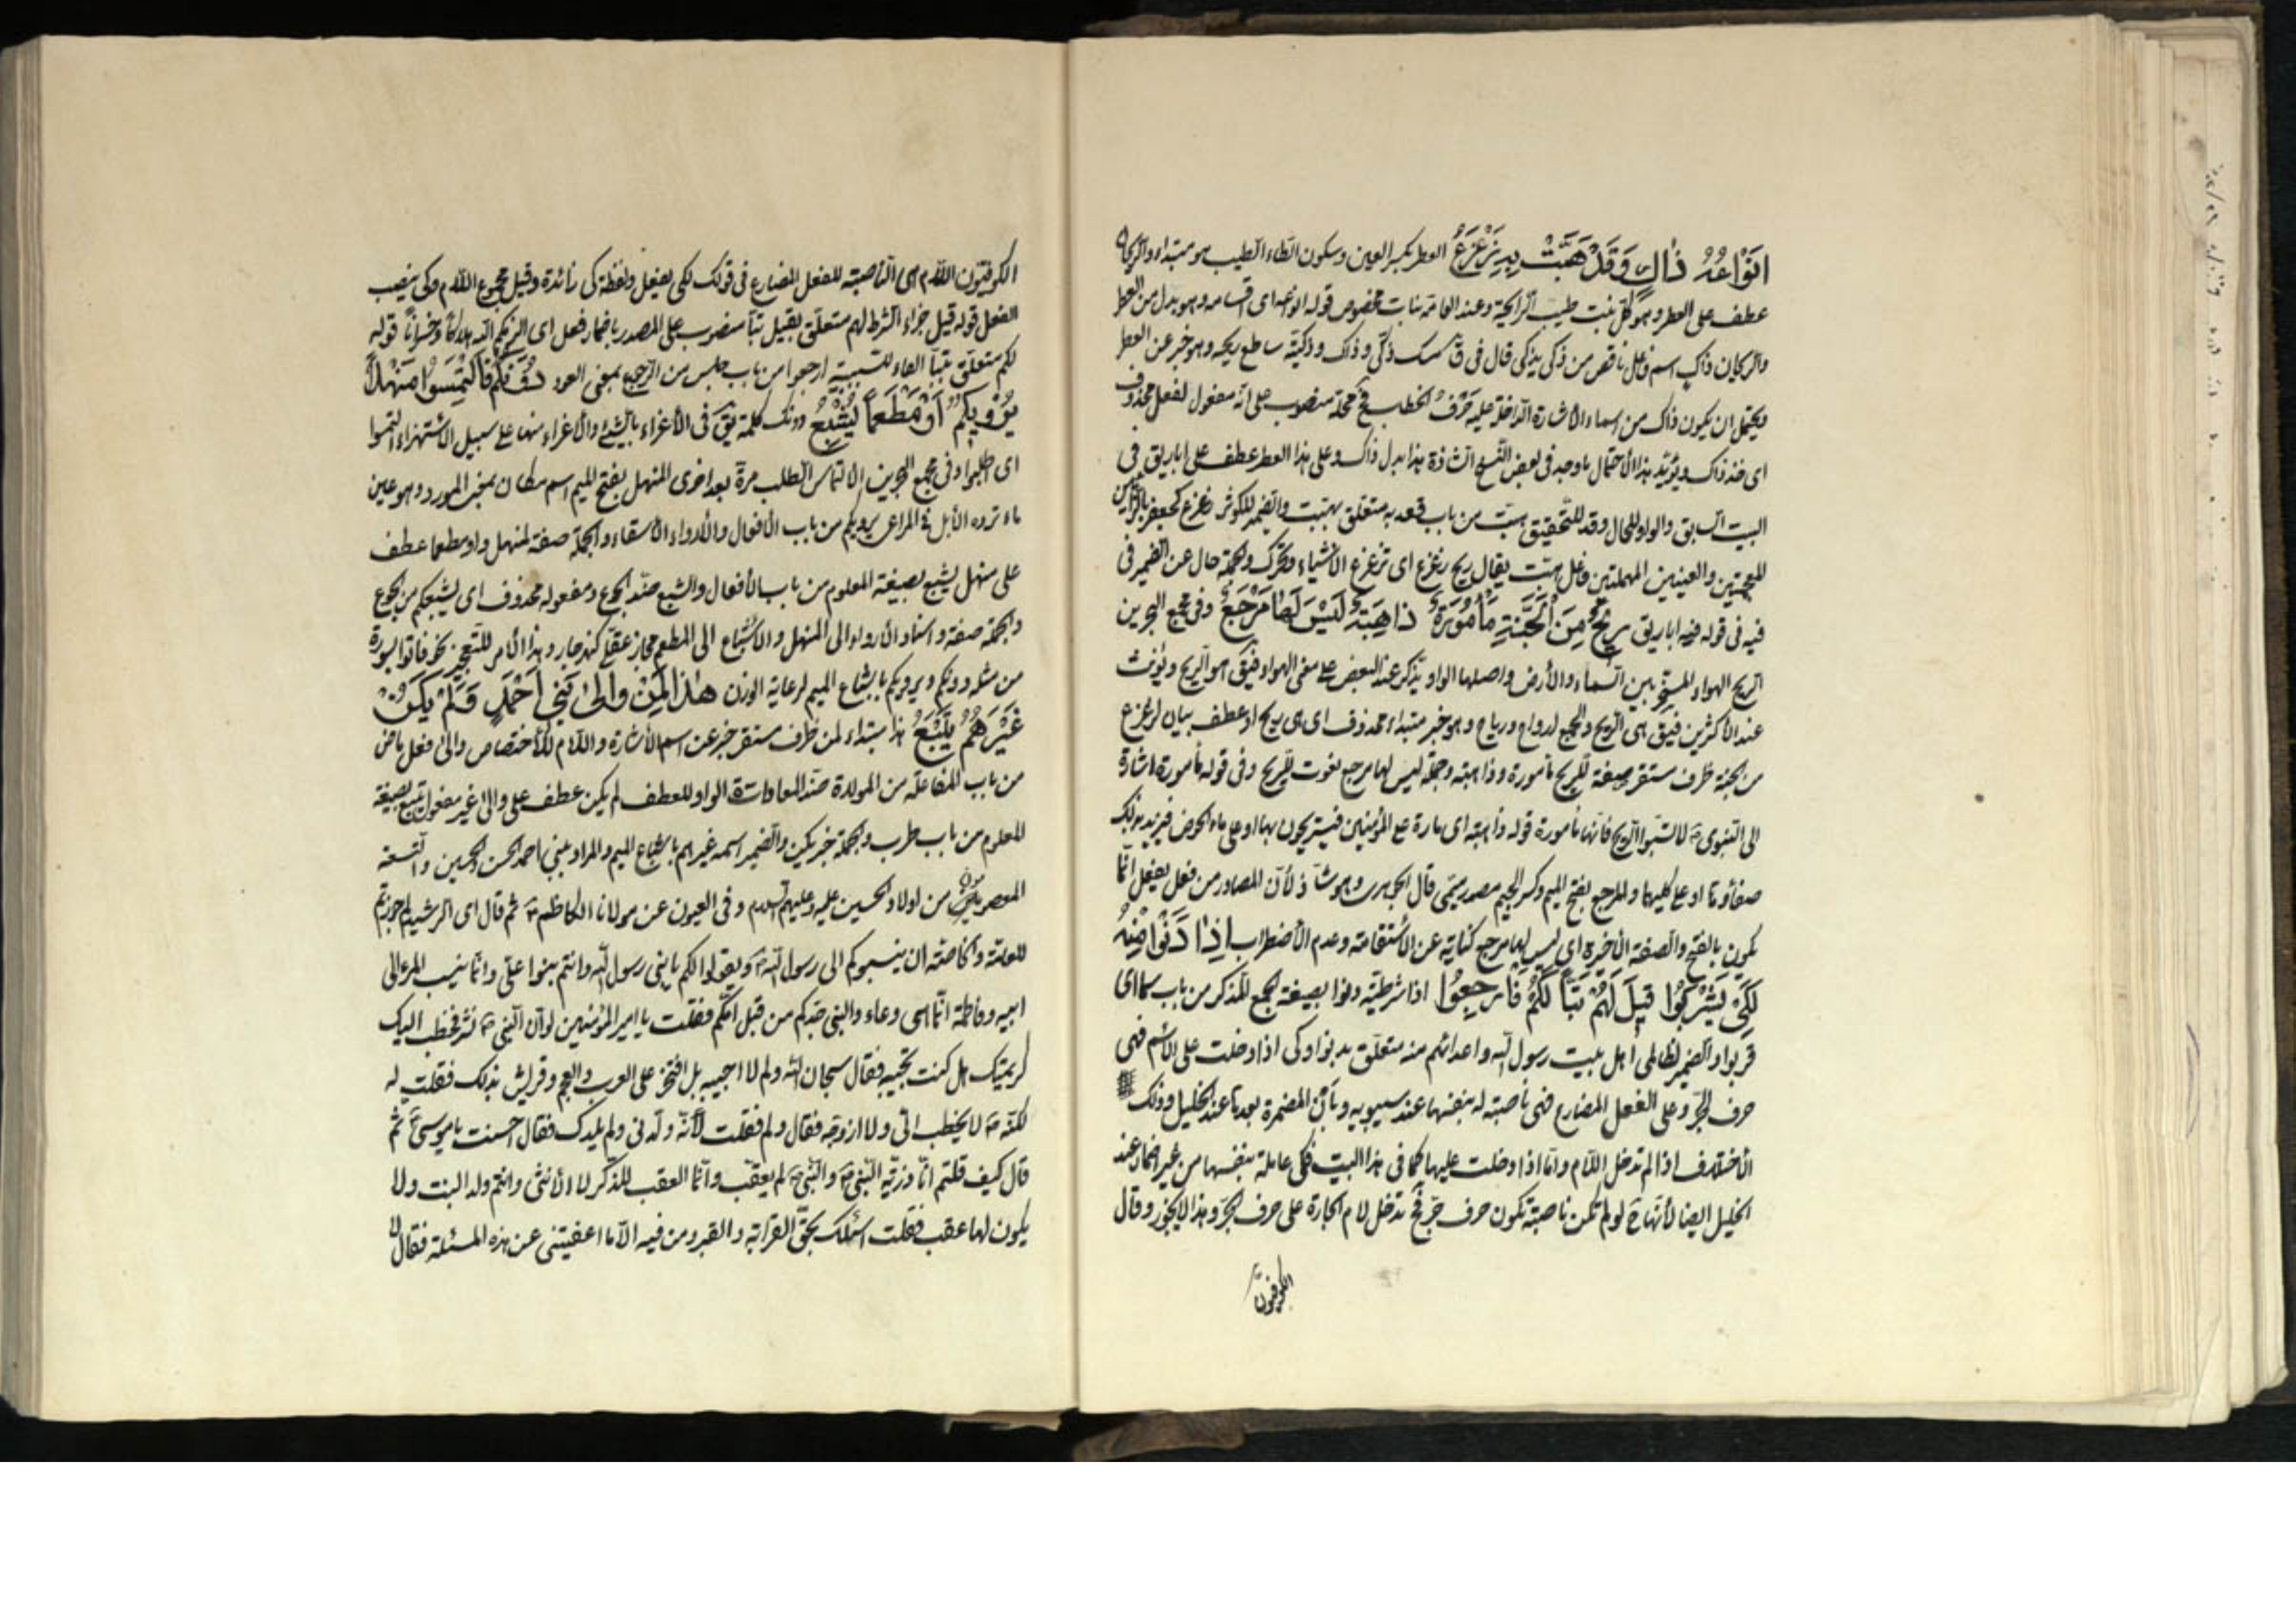 انواعه ذاك وقد هبت به زعزع العطر بكسر العين وسكون الطاء الطيب هو مبتداء والريحان
عطف على العطر وهو كل نبت طيب الرايحة وعند العامة نبات مخصوص قوله انواعه اى اقسامه وهو بدل من العطر
والريحان ذاك اسم فاعل ناقص من ذكى يذكى قال فى ق مسك ذكى وذاك وذكية ساطع ريحه وهو خبر عن العطر
ويحتمل ان يكون ذاك من اسماء الاشارة الداخلة عليه حرف الخطاب فح محله منصوب على انه مفعول لفعل محذوف
اى خذ ذاك ويؤيد هذا الاحتمال ما وجد فى بعض النسخ الشاذة هذا بدل ذاك وعلى هذا العطر عطف على اباريق فى
البيت السابق والواو للحال وقد للتحقيق هبت من باب قعد به متعلق بهبت والضمير للكوثر زعزع كجعفر بالزائين
المعجمتين والعينين المهملتين فاعل هبت يقال ريح زعزع اى تزعزع الاشياء وتحرك والجملة حال عن الضمير فى
فيه فى قوله فيه اباريق ريح من الجنة مأمورة ذاهبة ليس لها مرجع وفى مجمع البحرين
الريح الهواء المسخر بين السماء والأرض واصلها الواو يذكر عند البعض على معنى الهواء فيق هو الريح ويؤنث
عند الأكثرين فيق هى الريح والجمع ارواح ورياح وهو خبر مبتداء محذوف اى هى ريح او عطف بيان لزعزع
من الجنة ظرف مستقر صفة للريح مأمورة وذاهبة وجملة ليس لها مرجع نعوت للريح وفى قوله مأمورة اشارة
الى النبوى ص لا تسبوا الريح فانها مأمورة قوله ذاهبة اى مارة على المؤمنين فيستريحون بها او على ماء الحوض فيزيد بذلك
صفاؤه او على كليهما والمرجع بفتح الميم وكسر الجيم مصدر ميمى قال الجوهرى وهو شاذ لأن المصادر من فعل يفعل انما
تكون بالفتح والصفة الاخيرة اى ليس لها مرجع كناية عن الأستقامة وعدم الأضطراب اذا دنوا منه
لكى يشربوا قيل لهم تبا لكم فارجعوا اذا شرطية دنوا بصيغة الجمع المذكر من باب سما اى
قربوا والضمير لظالمى اهل بيت رسول الله واعدائهم منه متعلق بدنوا وكى اذا دخلت على الاسم فهى
حرف الجر وعلى الفعل المضارع فهى ناصبة له بنفسها عند سيبويه وبأن المضمرة بعدها عند الخليل وذلك
الأختلاف اذا لم تدخل اللام واما اذا دخلت عليها كما فى هذا البيت فكى عاملة بنفسها من غير اضمار عند
الخليل ايضا لأنها ح لو لم تكن ناصبة تكون حرف جر فح تدخل لام الجارة على حرف الجر وهذا لا يجوز وقال
الكوفيون
الكوفيون اللام هى الناصبة للفعل المضارع فى قولك لكى يفعل ولفظة كى زائدة وقيل مجموع اللام وكى ينصب
الفعل قوله قيل جزاء الشرط لهم متعلق بقيل تبا منصوب على المصدر باضمار فعل اى الزمكم الله هلاكا وخسرانا قوله
لكم متعلق بتبا الفاء للسببية ارجعوا من باب جلس من الرجع بمعنى العود دونكم فالتمسوا منهلا
يرويكم او مطعما يشبع دونك كلمة يق فى الأغراء بالشئ والأغراء منها على سبيل الاستهزاء التمسوا
اى اطلبوا وفى مجمع البحرين الالتماس الطلب مرة بعد اخرى المنهل بفتح الميم اسم مكان بمعنى المورد وهو عين
ماء ترده الأبل فى المراعى يرويكم من باب الأفعال والأرواء الأسقاء والجملة صفة لمنهل واو مطعما عطف
على منهل يشبع بصيغة المعلوم من باب الأفعال والشبع ضد الجوع ومفعوله محذوف اى يشبعكم من الجوع
والجملة صفة واسناد الأرواء الى المنهل والأشباع الى المطعم مجاز عقلى كنهر جار وهذا الأمر للتعجيز نحو فاتوا بسورة
من مثله ودونكم ويرويكم باشباع الميم لرعاية الوزن هذا لمن والى بنى احمد ولم يكن
غيرهم يتبع هذا مبتداء لمن ظرف مستقر خبر عن اسم الأشارة واللام للأختصاص والى فعل ماض
من باب المفاعلة من الموالاة ضد المعادات والواو للعطف لم يكن عطف على والى غير مفعول يتبع بصيغة
المعلوم من باب طرب والجملة خبر يكن والضمير اسمه غيرهم باشباع الميم والمراد ببنى احمد الحسن والحسين والتسعة
المعصومون من اولاد الحسين عليه وعليهم السلام وفى العيون عن مولانا الكاظم ع ثم قال اى الرشيد لم جوزتم
للعامة والخاصة ان ينسبوكم الى رسول الله ص ويقولوا لكم يا بنى رسول الله وانتم بنوا على وانما ينسب المرء الى
ابيه وفاطمة انما هى وعاء والنبى جدكم من قبل امكم فقلت يا امير المؤمنين لو ان النبى ص نشر فخطب اليك
كريمتك هل كنت تجيبه فقال سبحان الله ولم لا اجيبه بل افتخر على العرب والعجم وقريش بذلك فقلت له
لكنه ص لا يخطب الى ولا ازوجه فقال ولم فقلت لأنه ولدنى ولم يلدك فقال احسنت يا موسى ع ثم
قال كيف قلتم انا ذرية النبى ص والنبى ص لم يعقب وانما العقب للذكر لا الأنثى وانتم ولد البنت ولا
يكون لها عقب فقلت اسئلك بحق القرابة والقبر ومن فيه الا ما اعفيتنى عن هذه المسئلة فقال لا